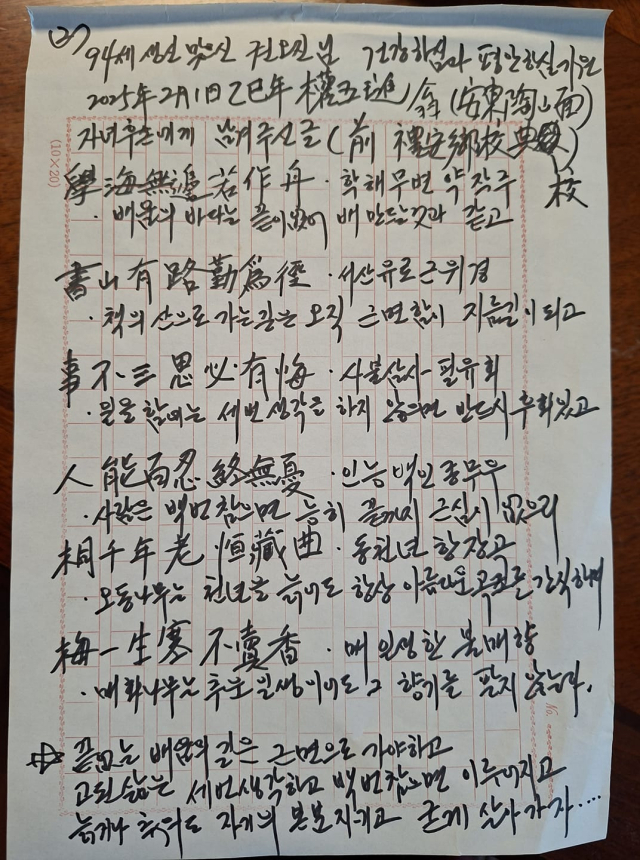 94세 생신 맞으신 권오진님 건강하심과 평안하심 기원
2025年 2月 1日 乙巳年 權五 翁 (安東 陶山面)
자녀후손에게 남겨주신 글 (前 禮安鄕校 典校)
(10×20)
學海無邊若作舟 · 학해무변 약작주
· 배움의 바다는 끝이없어 배 만드는것과 같고
書山有路勤爲徑 · 서산유로 근위경
· 책의 산으로 가는길은 오직 근면함이 지름길이 되고
事不三思必有悔 · 사불삼사 필유회
· 일을 함에는 세번 생각을 하지 않으면 반드시 후회있고
人能百忍終無憂 · 인능백인 종무우
· 사람은 백번 참으면 능히 끝까지 근심이 없으리
桐千年老恒藏曲 · 동천년 항장고
· 오동나무는 천년을 늙어도 항상 아름다운 곡조를 간직하며
梅一生寒不賣香 · 매일생한 불매향
· 매화나무는 추운 일생이어도 그 향기를 팔지 않는다.
No.
끝없는 배움의 길은 근면으로 가야하고
고된 삶은 세번생각하고 백번참으면 이루어지고
늙거나 추워도 자기의 본분지키고 굳게 살아가자....